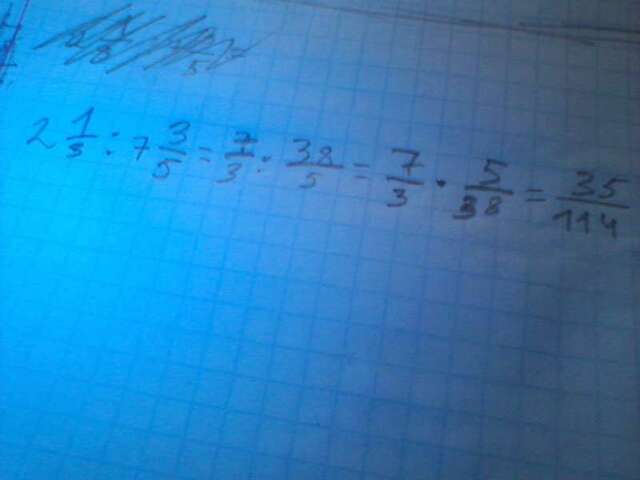 2 1/3 : 7 3/5 = 7/3 : 38/5 = 7/3 · 5/38 = 35/114